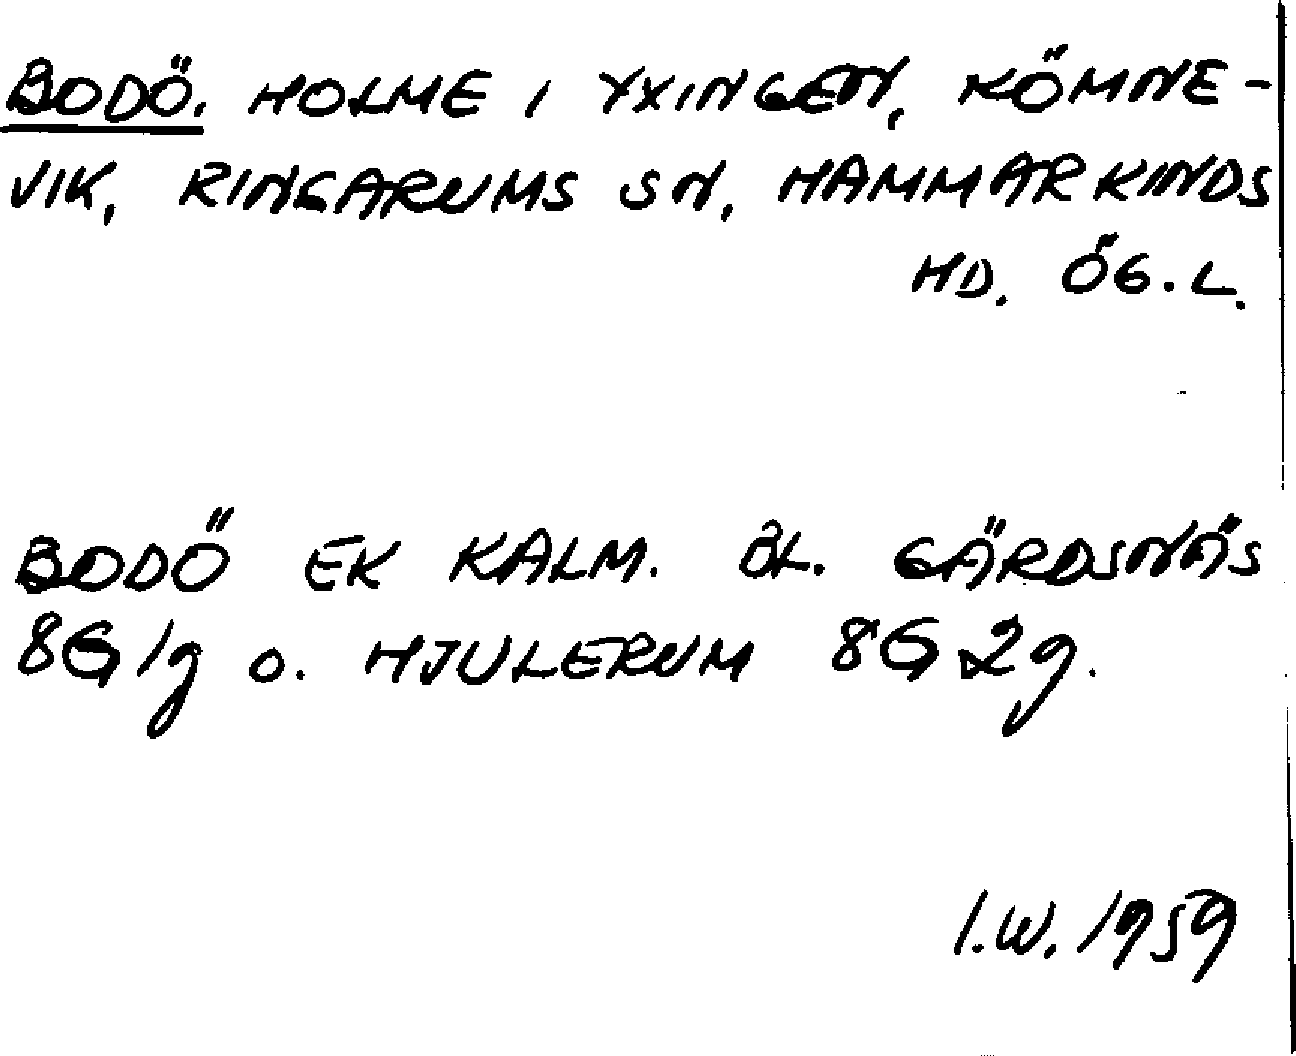 BODÖ. HOLME I YXINGEN, KÖMNE-
VIK, RINGARUMS SN, HAMMARKINDS
HD. ÖG.L.
BODÖ EK KALM. BL. GÄRDSNÄS
8G 1g o. HJULERUM 8G 2g.
I.W. 1959